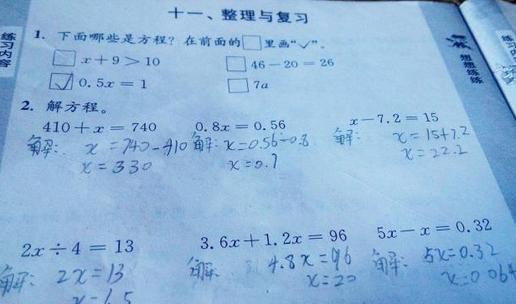 十一、整理与复习
练习内容
1. 下面哪些是方程？在前面的□里画“√”。
□ x+9>10 □ 46-20=26
☑ 0.5x=1 □ 7a
想想练练
2. 解方程。
410+x=740 0.8x=0.56 x-7.2=15
解: x=740-410 解: x=0.56÷0.8 解: x=15+7.2
x=330 x=0.7 x=22.2
2x÷4=13 3.6x+1.2x=96 5x-x=0.32
解: 2x=13 解: 4.8x=96 解: 5x=0.32
x=6.5 x=20 x=0.064